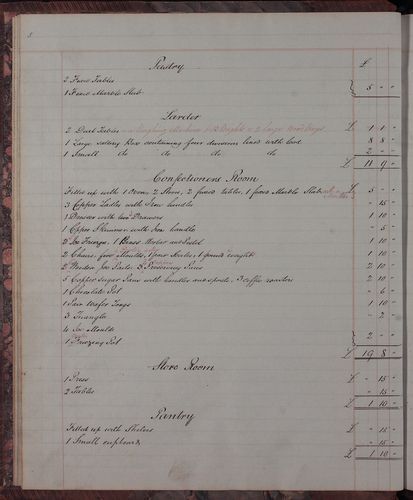 Pastry £
2 Fixed Tables
1 Fixed Marble Slab 5 " "
Larder
2 Deal Tables £ 1 1 "
1 Large Salting Box containing four divisions lined with lead 8 8 "
1 Small do do do do 2 " "
£ 11 9 "
Confectioners Room
Fitted up with 1 Oven, 2 Stoves, 2 fixed tables, 1 fixed Marble Slab £ 5 " "
3 Copper Ladles with Iron handles " 15 "
1 Dresser with two Drawers 1 10 "
1 Copper Skimmer with Iron handle " 5 "
2 Ice 1 Brass Mortar and Pestle 1 10 "
2 Moulds, 1 four 1 pound weight 1 10 "
2 Wooden Ice Pails, 8 Preserving Pans 2 10 "
5 Copper Sugar Pans with handles and spouts, 3 coffee roasters 2 10 "
1 Chocolate Pot " 6 "
1 Pair Wafer Tongs 1 10 "
3 Triangles " 2 "
4 Ice Moulds
1 Freezing Pot 2 " "
£ 19 8 "
Store Room
1 Press £ " 15 "
2 Tables " 15 "
£ 1 10 "
Pantry
Fitted up with Shelves " 15 "
1 Small cupboard " 15 "
£ 1 10 "